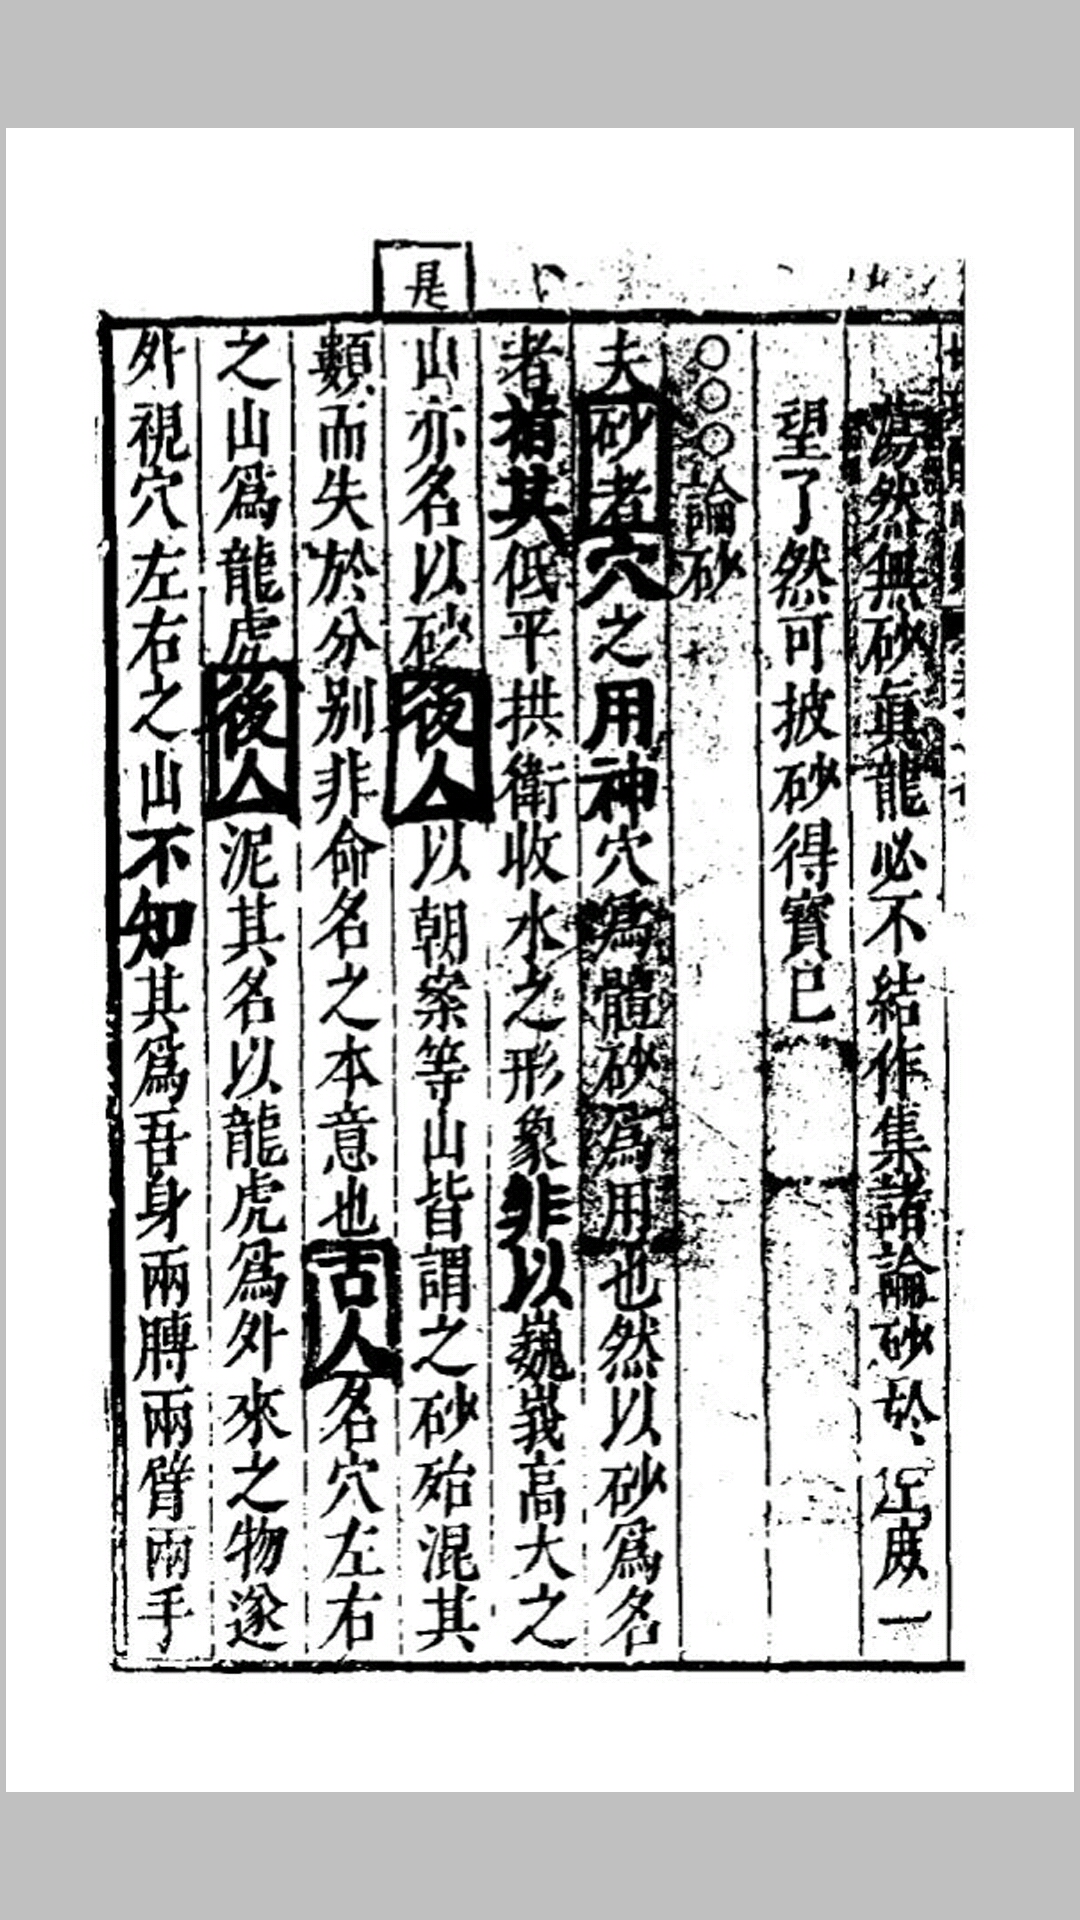 蕩然無砂真龍必不結作集諸論砂於𢀖度一
望了然可披砂得寶已
○○○論砂
夫砂者穴之用神穴為體砂為用也然以砂為名
者指其低平拱衛收水之形象非以巍峩高大之
是
山亦名以砂後人以朝案等山皆謂之砂殆混其
類而失於分別非命名之本意也古人名穴左右
之山為龍虎後人泥其名以龍虎為外來之物遂
外視穴左右之山不知其為吾身兩膊兩臂兩手